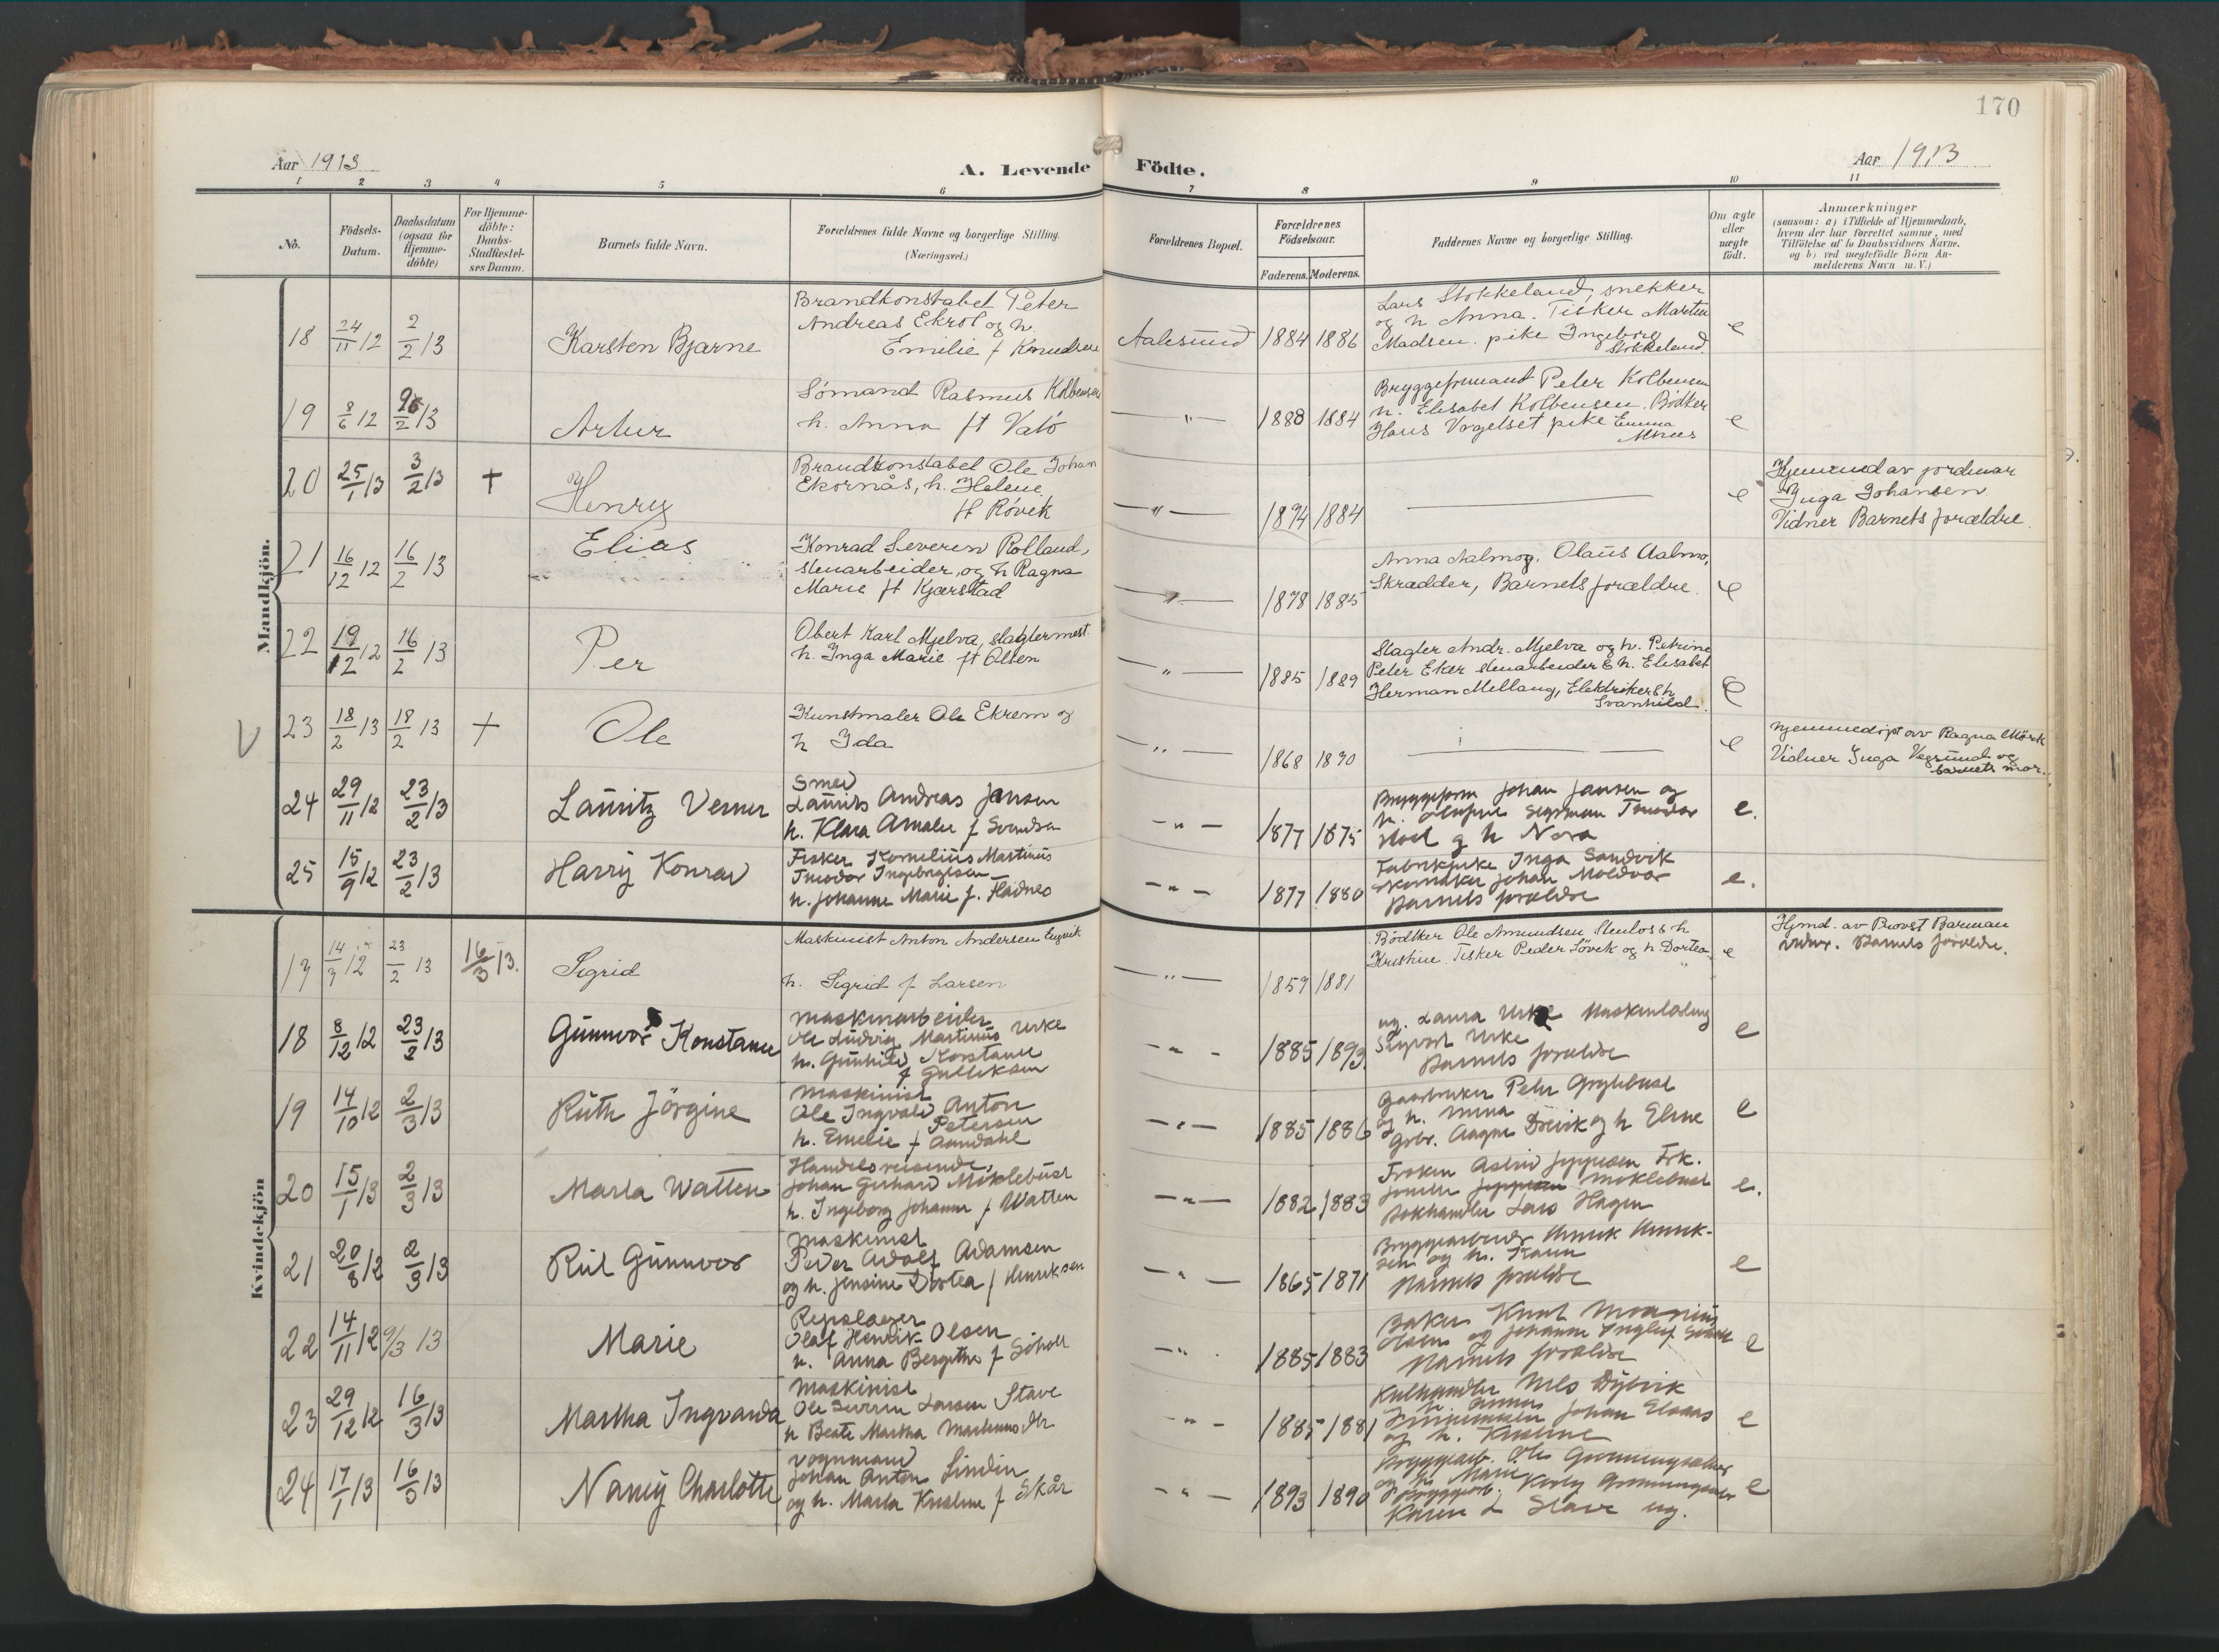 170
Aar 1913
A. Levende Födte.
Aar 1913
1 2 3 4 5 6 7 8 9 10 11
No.
Födsels-Datum.
Daabsdatum (ogsaa for Hjemme-döbte)
For Hjemme-döbte: Daabs-Stadfæstel-ses Datum.
Barnets fulde Navn.
Forældrenes fulde Navne og borgerlige Stilling. (Næringsvei.)
Forældrenes Bopæl.
Forældrenes Födselsaar.
Faderens. Moderens.
Faddernes Navne og borgerlige Stilling.
Om ægte eller uægte födt.
Anmærkninger
(saasom: a) i Tilfælde af Hjemmedaab, hvem der har forrettet samme, med Tilföielse af to Daabsvidners Navne. og b) ved uægtefödte Börn An-melderens Navn m. V.)
Mandkjön.
18 24/11 12 2/2 13 Karsten Bjarne
Brandkonstabel Peter
Andreas Ekrol og h.
Emilie f Knudsen
Aalesund 1884 1886
Lars Stokkeland, snekker
og h Anna. Fisker Martin
Madsen. pike Ingeborg
Stokkeland.
e
19 8/6 12 2/13 Artur
Sömand Rasmus Kolbensen
h. Anna ft Vatö
— " — 1888 1884
Bryggeformand Peter Kolbensen
h. Elisabet Kolbensen. Bödker
Hans Vogelset pike Emma
e
20 25/1 13 3/2 13 + Henry
Brandkonstabel Ole Johan
Ekornås, h. Helene
ft Rövik
— " — 1894 1884
e
Hjemmed av jordmor
Inga Johansen
Vidner Barnets forældre
21 16/12 12 16/2 13 Elias
Konrad Severin Rolland,
stenarbeider, og h Ragna
Marie ft Kjærstad
— " — 1878 1885
Anna Aalmo, Olaus Aalmo,
Skrædder, Barnets forældre.
e
22 19/12 12 16/2 13 Per
Obert Karl Mjelva, slagtermest.
h. Inga Marie ft Olsen
— " — 1885 1889
Slagter Andr. Mjelva og h. Petrine
Peter Eker stenarbeider & h. Elisabet
Herman Mellaug, Elektriker & h
Svanhild.
e
V 23 18/2 13 18/2 13 + Ole
Kunstmaler Ole Ekrem og
h Ida
— " — 1868 1870
e
hjemmedöpt av Ragna Mörk
Vidner Inga Vegsund og
barnets mor.
24 29/11 12 23/2 13 Lauritz Verner
Smed
Laurits Andreas Jensen
h. Klara Amalie f Svendsen
— " — 1877 1875
Bryggeform Johan Jansen og
og h Nora
e.
25 15/9 12 23/2 13 Harry Konrad
Fisker Kornelius Martinus
Teodor Ingebrigtsen
h. Johanne Marie f. Fladnes
— " — 1877 1880
Fabrikpike Inga Sandvik
Skomaker Johan Moldvær
Barnets forældre
e.
Kvindekjön
17 14/3 12 23/2 13 16/3 13. Sigrid
Maskinist Anton Andersen Engvik
h. Sigrid f Larsen
— " — 1859 1881
Bödker Ole Amundsen Stenlos & h
Kristine. Fisker Peder Lövik og h. Dortea
e
Hjmd. av Provst Barman
Vidner. Barnets forældre.
18 8/12 12 23/2 13 Gunvor Konstance
Maskinarbeider
Ole Ludvig Martinus Urke
h. Gunhild Konstance
f Gulliksen
— " — 1885 1893
ug. Laura Urke
Sigvart Urke
Barnets forældre
e
19 14/10 12 2/3 13 Ruth Jörgine
Maskinist
Ole Ingvald Anton
Petersen
h. Emelie f Aandahl
— " — 1885 1886
Gaardbruker Peter Grythbust
og h. Mina
Grbr. Aagne Drevik og h Eline
e
20 15/1 13 2/3 13 Marta Watten
Handelsreisende
Johan Gerhard Moklebust
h. Ingeborg Johanne f Watten
— " — 1882 1883
Fröken Astrid Jeppesen Frk.
Moklebust
Bokhandler Lars Hagen
e.
21 20/8 12 2/3 13 Rut Gunvor
Maskinist
Peder Adolf Adamsen
og h. Jensine Dortea f Henriksen
— " — 1865 1871
Bryggearbeider Henrik Henrik-
sen og h. Karen
Barnets forældre
e
22 14/11 12 9/3 13 Marie
Repslager
Olaf Henrik Olsen
h. Anna Bergithe f Söholt
— " . 1885 1883
Baker Knut
Olsen og Johanne
Barnets forældre
e
23 29/12 12 16/3 13 Martha Ingvarda
Maskinist
Ole Severin Larsen Stave
h Beate Martha
- " - 1885 1881
Kulhandler Nils Dybvik
h. Anna
Johan Elsaas
og h. Kristine
e
24 17/1 13 16/3 13 Nancy Charlotte
Vognmand
Johan Anton Lindin
og h. Marta Kristine f Skår
- " - 1893 1890
Bryggearb. Ole Grönningsæter
og h. Marie
Karen L Stave ug.
e